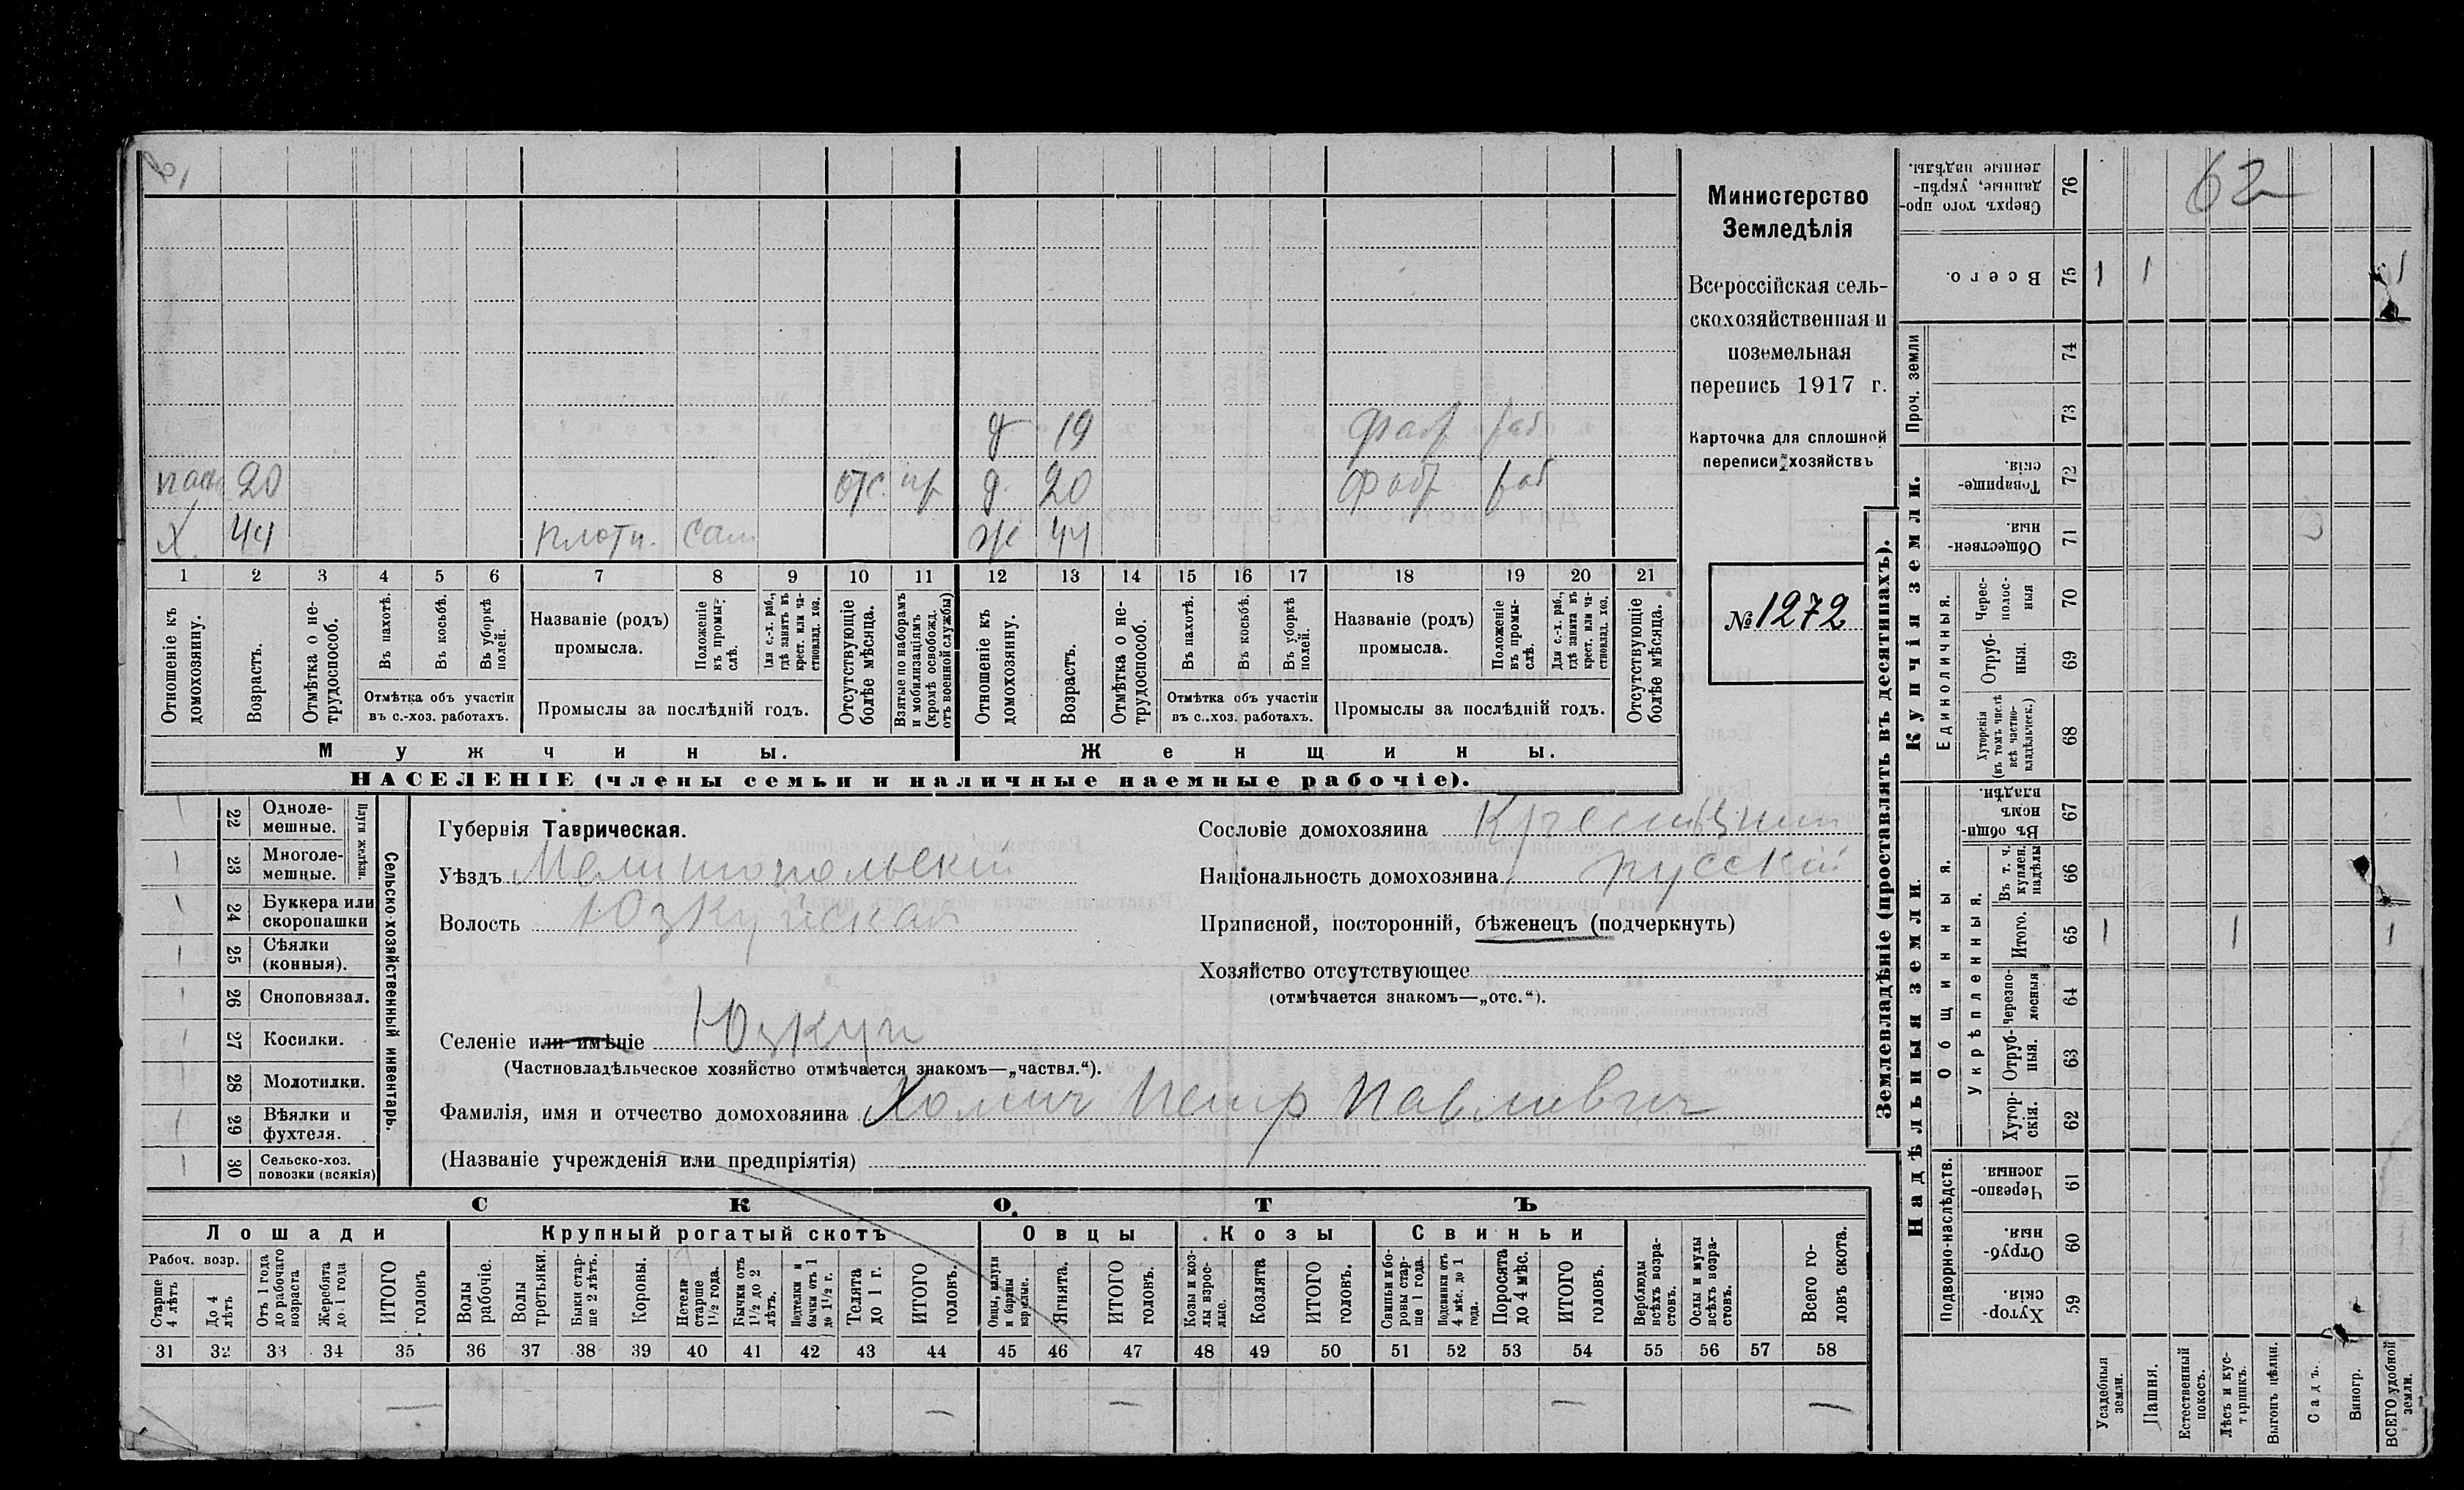 62
Министерство
Земледѣлія
Всероссійская сель-
скохозяйственная и
поземельная
перепись 1917 г.
Карточка для сплошной
переписи хозяйствъ
№ 1272
д 19 фабр раб
20 отс. д. 20 фабр раб
х. 44 плотн. сам ж 44
1 2 3 4 5 6 7 8 9 10 11 12 13 14 15 16 17 18 19 20 21
Отношеніе къ домохозяину.
Возрастъ.
Отмѣтка о не-трудоспособ.
Въ пахотѣ.
Въ косьбѣ.
Въ уборкѣ полей.
Отмѣтка объ участіи
въ с.-хоз. работахъ.
Названіе (родъ)
промысла.
Положеніе въ промы-слѣ.
Для с.-х. раб., гдѣ занятъ въ крест. или ча-стновлад. хоз.
Промыслы за послѣдній годъ.
Отсутствующіе болѣе мѣсяца.
Взятые по наборамъ и мобилизаціямъ (кромѣ освобожд. отъ военной службы)
Отношеніе къ домохозяину.
Возрастъ.
Отмѣтка о не-трудоспособ.
Въ пахотѣ.
Въ косьбѣ.
Въ уборкѣ полей.
Отмѣтка объ участіи
въ с.-хоз. работахъ.
Названіе (родъ)
промысла.
Положеніе въ промы-слѣ.
Для с.-х. раб., гдѣ занята въ крест. или ча-стновлад. хоз.
Промыслы за послѣдній годъ.
Отсутствующіе болѣе мѣсяца.
Мужчины. Женщины.
НАСЕЛЕНІЕ (члены семьи и наличные наемные рабочіе).
Сельско-хозяйственный инвентарь.
Плуги желѣзн.
22 Одноле-мешные.
23 Многоле-мешные.
24 Буккера или скоропашки
25 Сѣялки (конныя).
26 Сноповязал.
27 Косилки.
28 Молотилки.
29 Вѣялки и фухтеля.
30 Сельско-хоз. повозки (всякія)
Губернія Таврическая.
Уѣздъ Мелитопольскій
Волость Юзкуйская
Селеніе или имѣніе Юзкуи
(Частновладѣльческое хозяйство отмѣчается знакомъ—„частвл.“).
Фамилія, имя и отчество домохозяина Хомич Петр Павлович
(Названіе учрежденія или предпріятія)
Сословіе домохозяина Крестьянин
Національность домохозяина русскій
Приписной, посторонній, бѣженецъ (подчеркнуть)
Хозяйство отсутствующее
(отмѣчается знакомъ—„отс.“).
СКОТЪ
Лошади Крупный рогатый скотъ Овцы Козы Свиньи
Рабоч. возр.
Старше 4 лѣтъ
До 4 лѣтъ
Отъ 1 года до рабочаго возраста
Жеребята до 1 года
ИТОГО головъ
Волы рабочіе.
Волы третьяки.
Быки стар-ше 2 лѣтъ.
Коровы.
Нетели старше 1½ года.
Бычки отъ 1½ до 2 лѣтъ.
Подтелки и бычки отъ 1 до 1½ г.
Телята до 1 г.
ИТОГО головъ.
Овцы, валухи и бараны взрослые.
Ягнята.
ИТОГО головъ.
Козы и коз-лы взрос-лые.
Козлята
ИТОГО головъ.
Свиньи и бо-ровы стар-ше 1 года.
Подсвинки отъ 4 мѣс. до 1 года.
Поросята до 4 мѣс.
ИТОГО головъ.
Верблюды всѣхъ возра-стовъ.
Ослы и мулы всѣхъ возра-стовъ.
Всего го-ловъ скота.
31 32 33 34 35 36 37 38 39 40 41 42 43 44 45 46 47 48 49 50 51 52 53 54 55 56 57 58
Землевладѣніе (проставлять въ десятинахъ).
Сверхъ того про-данные, укрѣп-ленные надѣлы. 76
Всего. 75 1 1 1
Проч. земли 74
73
Купчія земли.
Товарище-скія. 72
Обществен-ныя. 71
Единоличныя.
Черес-полос-ныя 70
Отруб-ныя. 69
Хуторскія (въ томъ числѣ всѣ частно-владѣльческ.) 68
Надѣльныя земли.
Общинныя.
Въ общин-номъ владѣн. 67
Укрѣпленныя.
Въ т. ч. куплен. надѣлы 66
Итого. 65 1 1 1
Черезпо-лосныя 64
Отруб-ныя. 63
Хутор-скія. 62
Подворно-наслѣдств.
Черезпо-лосныя. 61
Отруб-ныя. 60
Хутор-скія. 59
Усадебныя земли.
Пашня.
Естественный покосъ.
Лѣсъ и кус-тарникъ.
Выгонъ цѣлин.
Садъ.
Виногр.
ВСЕГО удобной земли.